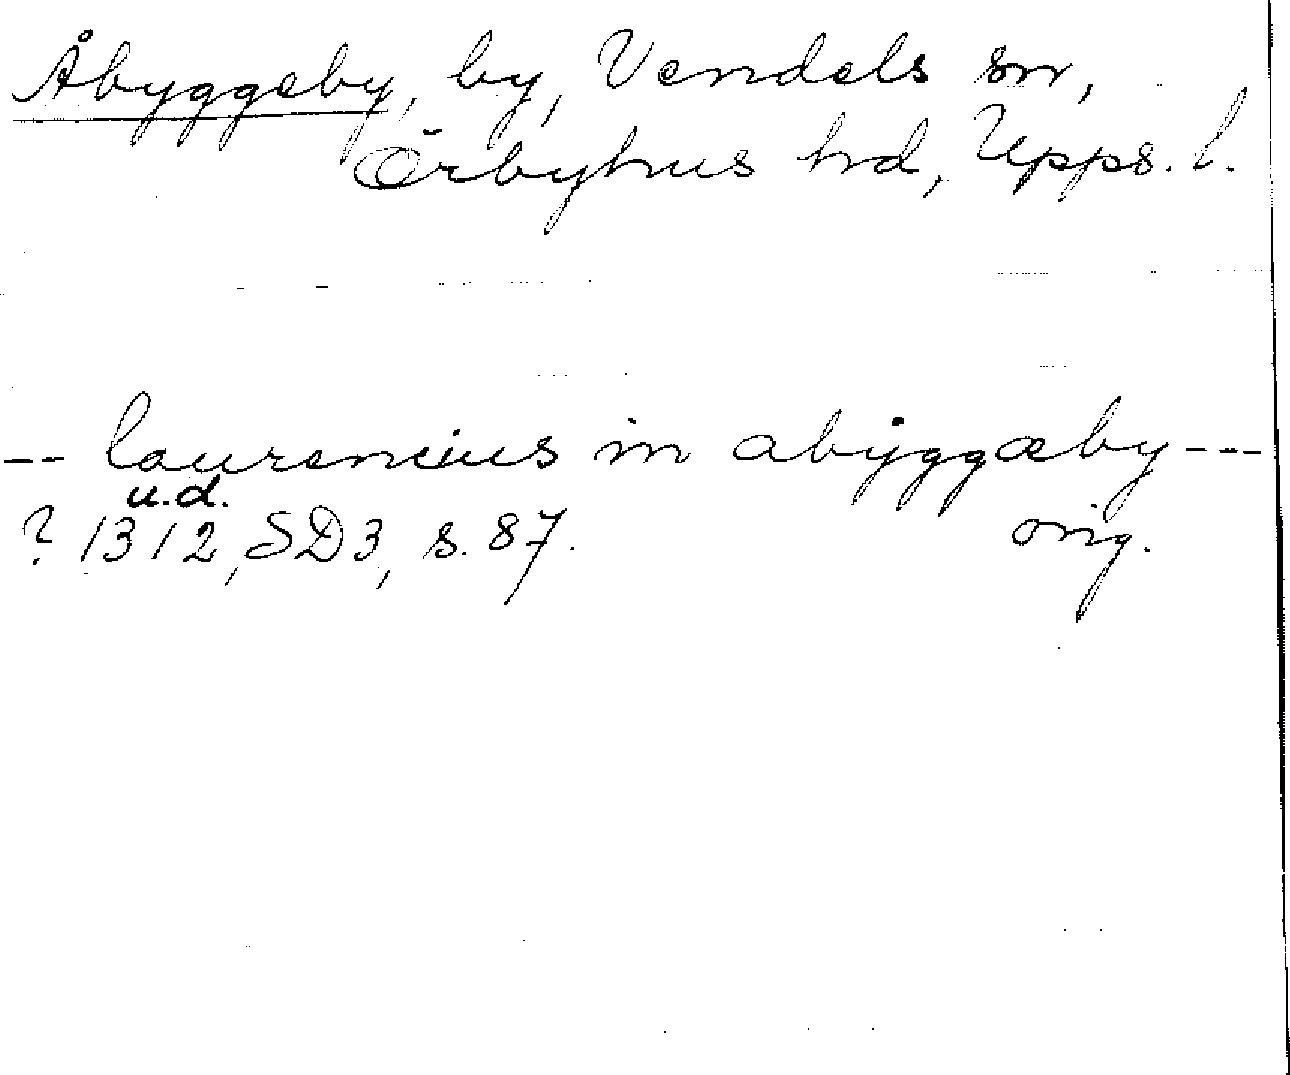 Åbyggeby, by, Vendels sn,
Örbyhus hd, Upps. l.
-- laurencius in abẏggæby ---
u.d.
? 1312, SD3, s. 87. orig.